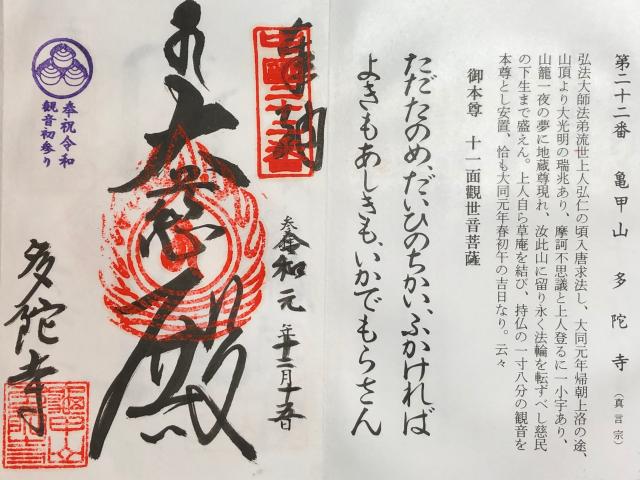 第二十二番　亀甲山　多陀寺（真言宗）
弘法大師法弟流世上人弘仁の頃入唐求法し、大同元年帰朝上洛の途、
山頂より大光明の瑞兆あり、摩訶不思議と上人登るに一小宇あり、
山籠一夜の夢に地蔵尊現れ、汝此山に留り永く法輪を転すべし慈民
の下生まで盛えん。上人自ら草庵を結び、持仏の一寸八分の観音を
本尊とし安置、恰も大同元年春初午の吉日なり。云々
御本尊　十一面観世音菩薩
ただたのめ、だいひのちかい、ふかければ
よきもあしきも、いかでもらさん
奉納
参拝
令和元年十二月十五日
大慈殿
奉祝令和
観音初参り
多陀寺